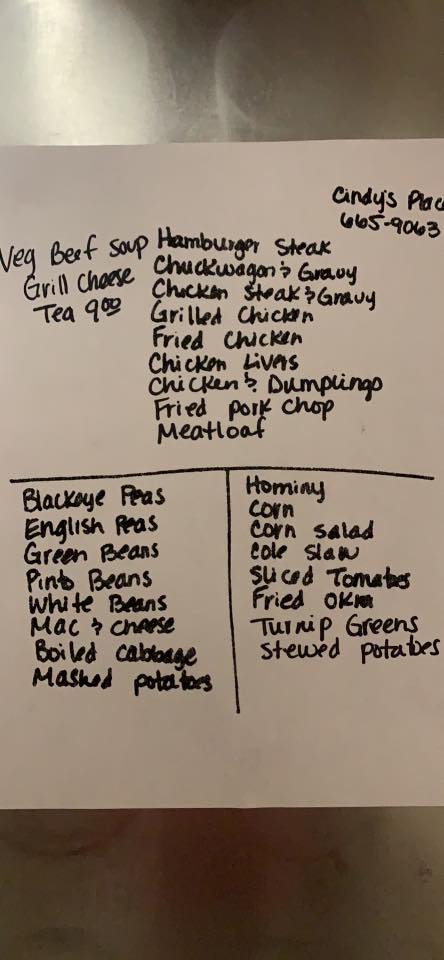 Cindy's Plac
665-9063
Veg Beef Soup
Grill Cheese
Tea 9.00
Hamburger Steak
Chuckwagon & Gravy
Chicken Steak & Gravy
Grilled Chicken
Fried Chicken
Chicken Livers
Chicken & Dumplings
Fried Pork Chop
Meatloaf
Blackeye Peas
English Peas
Green Beans
Pinto Beans
White Beans
Mac & Cheese
Boiled Cabbage
Mashed potatoes
Hominy
Corn
Corn Salad
Cole Slaw
Sliced Tomatoes
Fried Okra
Turnip Greens
Stewed potatoes